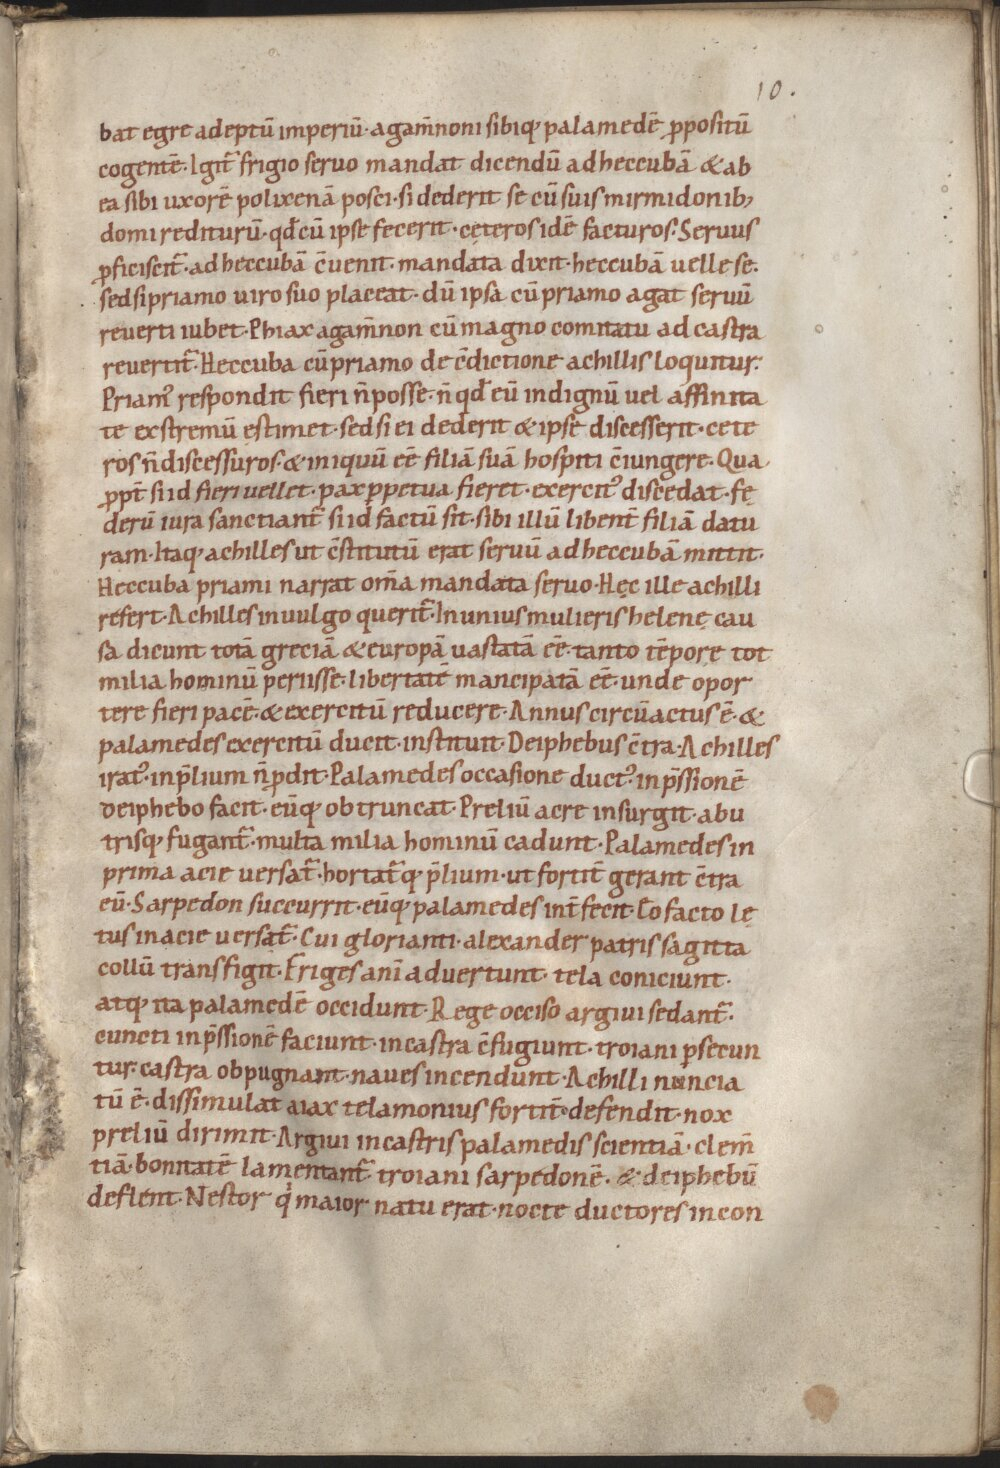 10.
bat egre adeptū imperiū· agam̄noni sibiq; palamedē ꝓpositū
cogentē· Igit̄ frigio seruo mandat dicendū ad heccubā & ab
ea sibi uxorē polixenā posci· si dederit se cū suis mirmidonib;
domi rediturū· qđ cū ipse fecerit· cęteros idē facturos· Seruus
ꝓficiscit̄· ad heccubā c̄uenit· mandata dixit· heccubā uelle se·
sed si priamo uiro suo placeat· dū ipsa cū priamo agat seruū
reuerti iubet· Phiax agam̄non cū magno comitatu ad castra
reuertit̄· Heccuba cū priamo de c̄dictione achillis loquitur·
Priam᾿ respondit fieri n̄ posse· n̄ qđ eū indignū uel affinita
te exstremū estimet· sed si ei dederit & ipse discesserit· cete
ros n̄ discessuros· & iniquū eē filiā suā hospiti c̄iungere· Qua
ꝓpt̄ si id fieri uellet· pax ꝑpetua fieret· exercit᾿ discedat· fę
derū iura sanctiant̄ si id factū sit· sibi illū libent̄ filiā datu
ram· Itaq; achilles ut c̄stitutū erat seruū ad heccubā mittit·
Heccuba priami narrat om̄a mandata seruo· Hęc ille achilli
refert· Achilles in uulgo querit̄· In unius mulieris helenę cau
sa dicunt totā greciā & europā uastatā eē· tanto tēpore tot
milia hominū periisse· libertatē mancipatā eē· unde opor
tere fieri pacē· & exercitū reducere· Annus circūactus ē· &
palamedes exercitū ducit· instituit· Deiphebus c̄tra· Achilles
irat᾿· in p̄lium n̄ ꝓdit· Palamedes occasione duct᾿· inp̄ssionē
deiphebo facit· eūq; obtruncat· Preliū acre insurgit· abu
trisq; fugant̄· multa milia hominū cadunt· Palamedes in
prima acie uersat̄· hortat̄q; p̄lium· ut fortit̄ gerant c̄tra
eū· Sarpedon succurrit· eūq; palamedes int̄fecit· Eo facto lę
tus in acie uersat̄· Cui glorianti· alexander patris sagitta
collū transfigit· Friges anī aduertunt· tela coniciunt·
atq; ita palamedē occidunt· Rege occiso argiui sedant̄·
cuncti inp̄ssionē faciunt· in castra c̄fugiunt· troiani ꝑsecun
tur· castra obpugnant· naues incendunt· Achilli nuncia
tū ē· dissimulat aiax telamonius fortit̄ defendit· nox
preliū dirimit· Argiui in castris palamedis scientiā· clem̄
tiā· bonitatē lamentant̄· troiani sarpedonē· & deiphebū
deflent· Nestor q̇ maior natu erat· nocte ductores in con